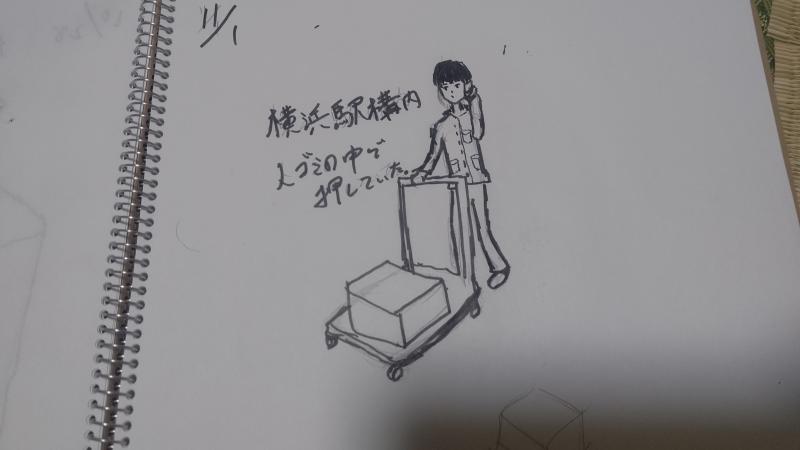 11/1
横浜駅構内
人ゴミの中で
押していた。